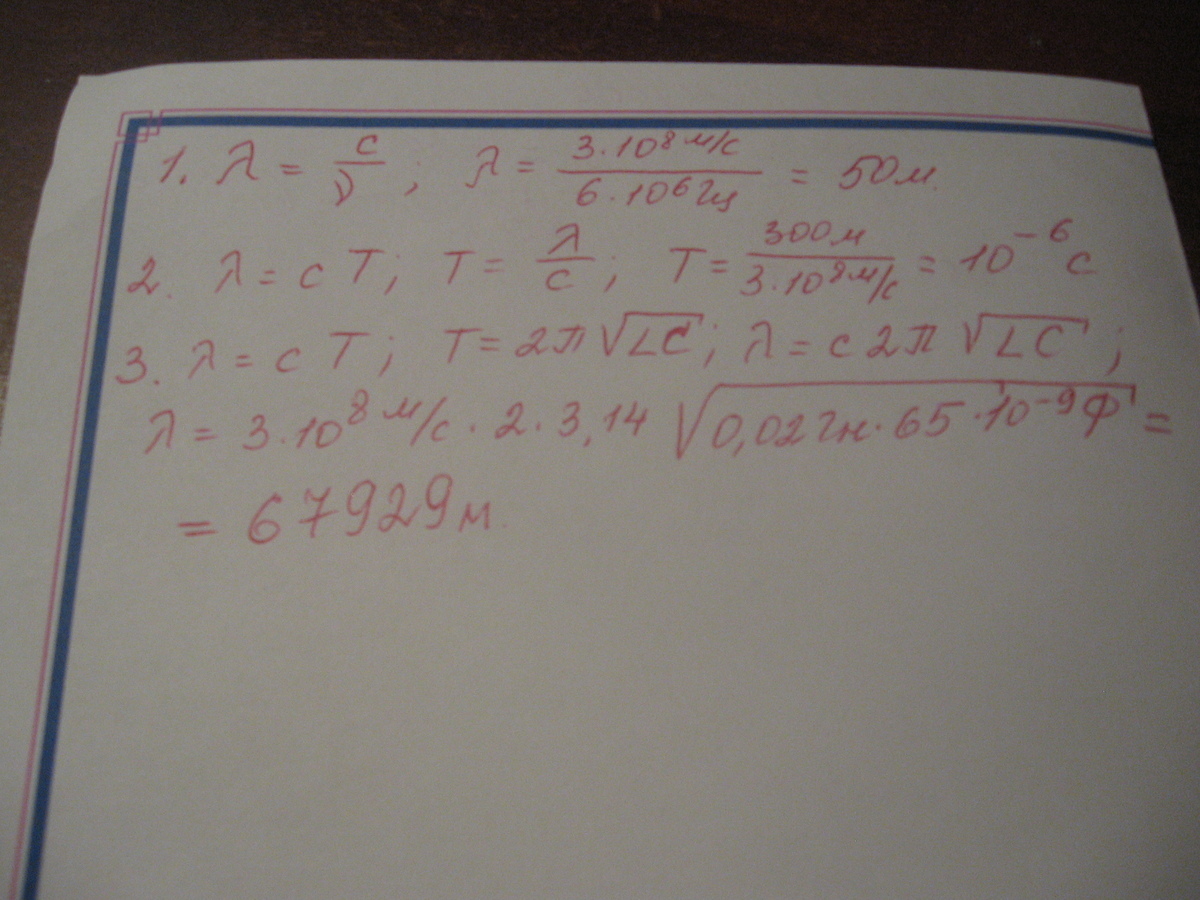 1. λ = c/ν ; λ = 3·10⁸ м/с / 6·10⁶ Гц = 50 м.
2. λ = c T ; T = λ/c ; T = 300 м / 3·10⁸ м/с = 10⁻⁶ с
3. λ = c T ; T = 2π √LC ; λ = c 2π √LC ;
λ = 3·10⁸ м/с · 2 · 3,14 √0,02 Гн · 65 · 10⁻⁹ Ф =
= 67929 м.